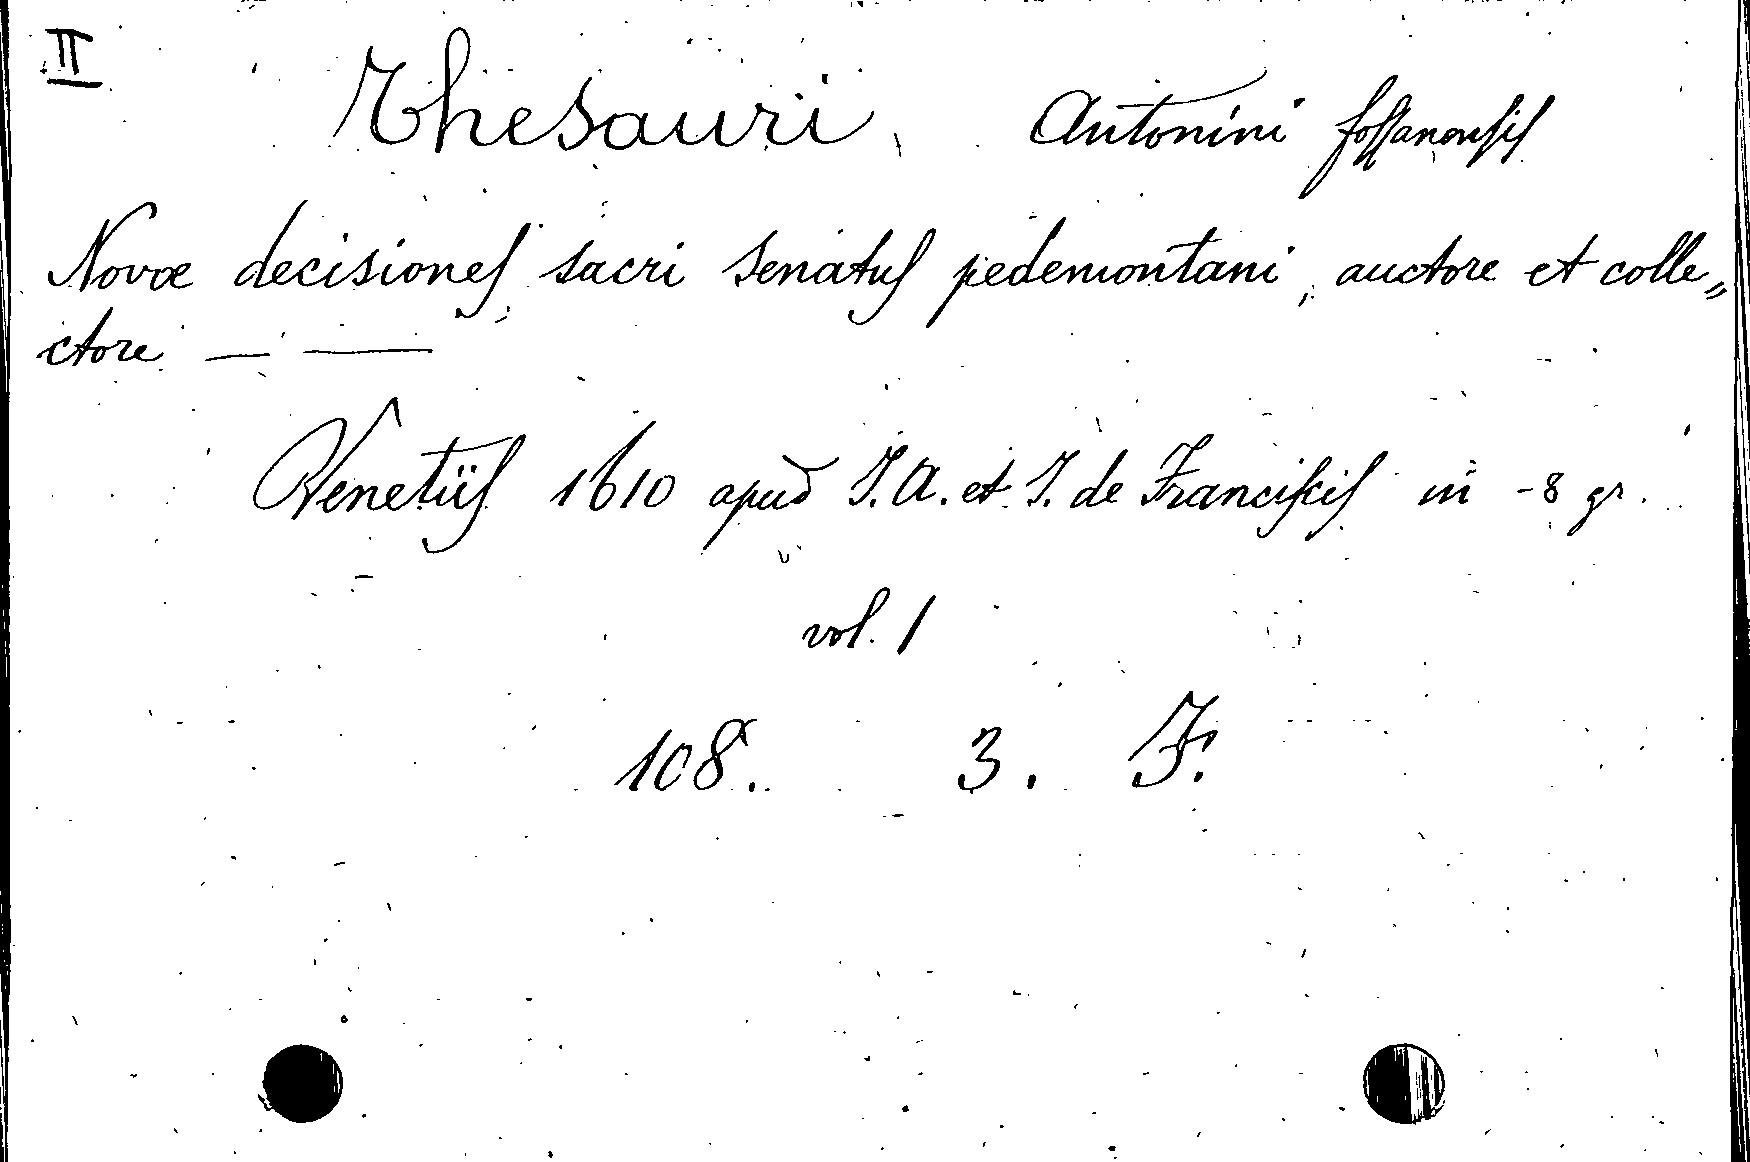 II
Thesauri, Antonini fossanensis
Novæ decisiones sacri senatus pedemontani, auctore et colle„
ctore — ——
Venetiis 1610 apud J. A. et J. de Franciscis in -8 gr.
vol. 1
108. 3. F.